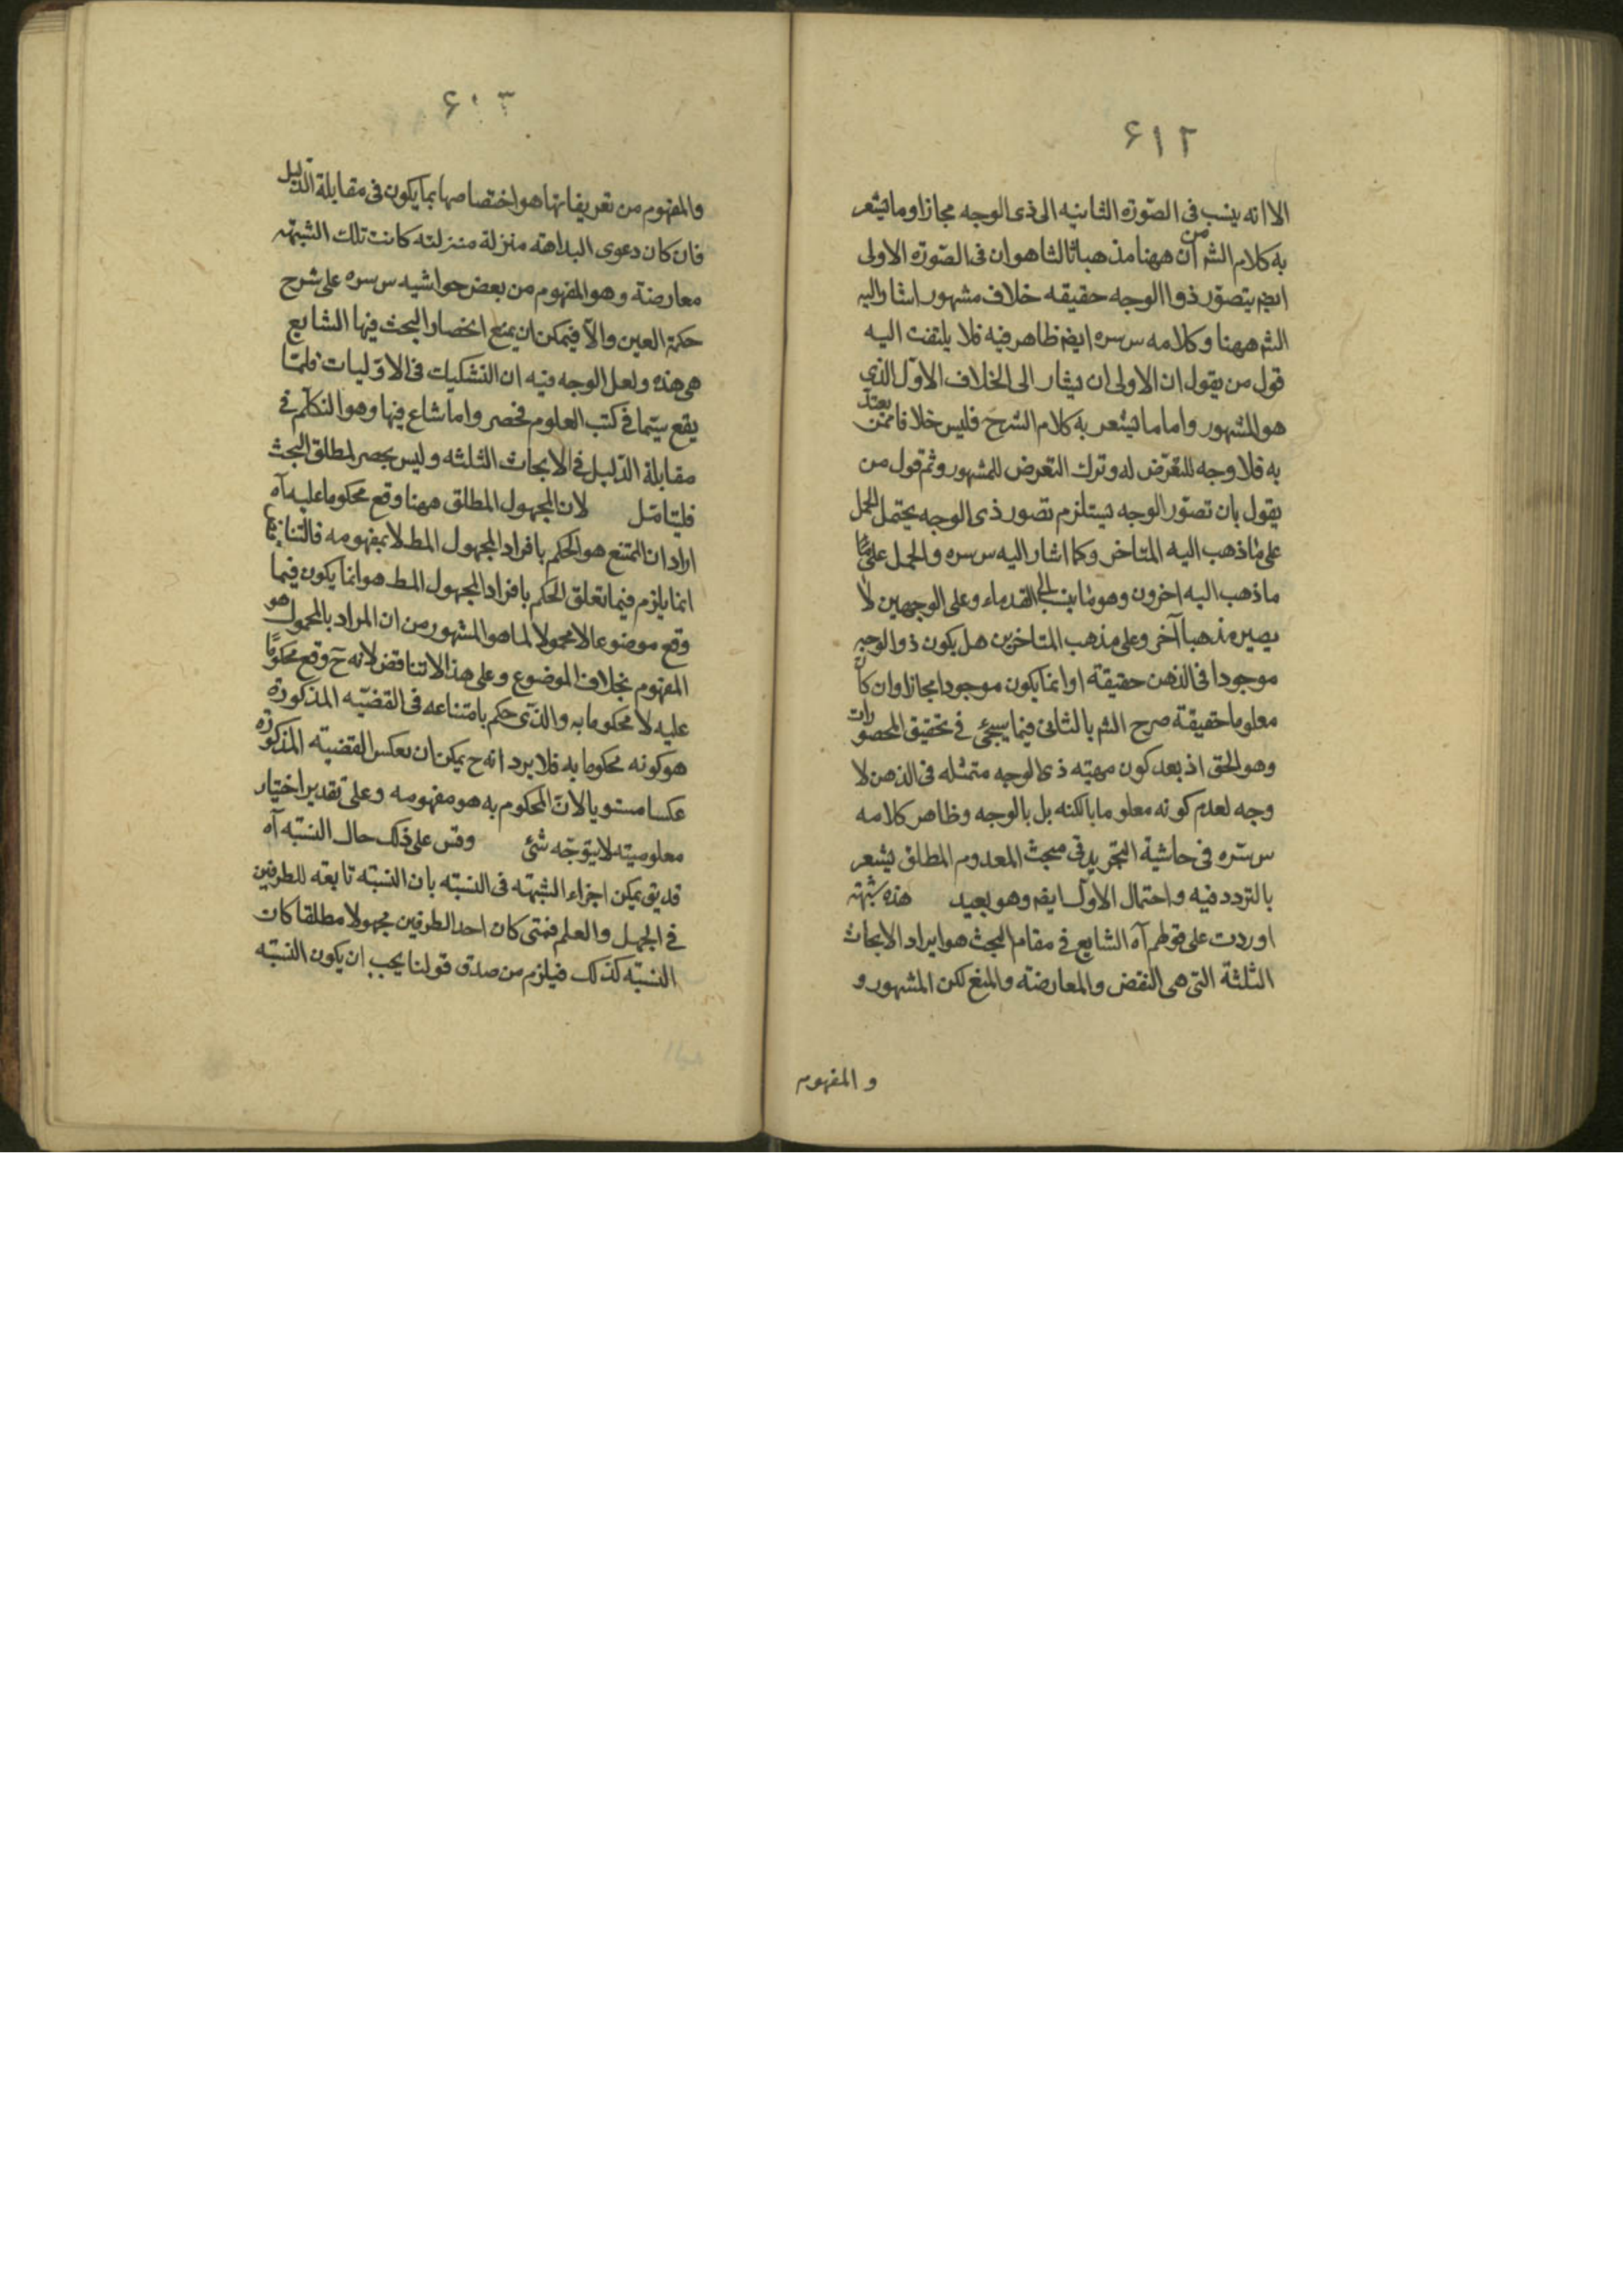 ۶۱۲
الا انه ينسب فى الصّورة الثانيه الى ذى الوجه مجازا وما يشعر
به كلام الشر من ان ههنا مذهبا ثالثا هو ان فى الصّورة الاولى
ايضا يتصوّر ذو الوجه حقيقه خلاف مشهور اشار اليه
الشر ههنا وكلامه س سره ايضا ظاهر فيه فلا يلتفت اليه
قول من يقول ان الاولى ان يشار الى الخلاف الاوّل الذى
هو المشهور واما ما يشعر به كلام الشرح فليس خلافا ممّن يعتدّ
به فلا وجه للتعّرض له وترك التعرض للمشهور وثم قول من
يقول بان تصوّر الوجه يستلزم تصور ذى الوجه يحتمل الحمل
على ما ذهب اليه المتاخر وكما اشار اليه س سره والحمل على
ما ذهب اليه اخرون وهو ما ينسب الى القدماء وعلى الوجهين لا
يصير مذهبا آخر وعلى مذهب المتاخرين هل يكون ذو الوجه
موجودا فى الذهن حقيقة او انما يكون موجودا مجازا وان كان
معلوما حقيقة صرح الشر بالثانى فيما سيجئ فى تحقيق المحصورات
وهو الحق اذ بعد كون مهيّه ذى الوجه متمثله فى الذهن لا
وجه لعدم كونه معلوما بالكنه بل بالوجه وظاهر كلامه
س سره فى حاشية التجريد فى مبحث المعدوم المطلق يشعر
بالتردد فيه واحتمال الاول ايضا وهو بعيد هذه شبهة
اوردت على قولهم آه الشايع فى مقام البحث هو ايراد الابحاث
الثلثة التى هى النقض والمعارضة والمنع لكن المشهور و
و المفهوم
۶۱۳
والمفهوم من تعريفاتها هو اختصاصها بما يكون فى مقابلة الدّليل
فان كان دعوى البداهة منزلة منزلته كانت تلك الشبهة
معارضة وهو المفهوم من بعض حواشيه س سره على شرح
حكمة العين والا فيمكن ان يمنع انحصار البحث فيها الشايع
هى هذه ولعل الوجه فيه ان التشكيات فى الاوّليات قلمّا
يقع سيّما فى كتب العلوم فحصر واما شاع فيها وهو التكلّم فى
مقابلة الدّليل فى الابحاث الثلثه وليس بحصر لمطلق البحث
فليتامّل لان المجهول المطلق ههنا وقع محكوما عليه آه
اراد ان الممتنع هو الحكم بافراد المجهول المط لا بمفهومه فالتناقض
انما يلزم فيما تعلق الحكم بافراد المجهول المط هو انما يكون فيما
وقع موضوعا لا محمولا لما هو المشهور من ان المراد بالمحمول هو
المفهوم بخلاف الموضوع وعلى هذا لا تناقض لانه ح وقع محكومًا
عليه لا محكوما به والذّى حكم بامتناعه فى القضيّه المذكورة
هو كونه محكوما به فلا يرد انه ح يمكن ان يعكس القضيّة المذكورة
عكسا مستويا لانّ المحكوم به هو مفهومه وعلى تقدير اختيار
معلوميته لا يتوجّه شئ وقس على ذلك حال النسبّه آه
قد يق يمكن اجراء الشبهة فى النسبّه بان النسبّة تابعة للطرفين
فى الجهل والعلم فمتى كان احد الطرفين مجهولا مطلقا كان
النسبّه كذلك فيلزم من صدق قولنا يجب ان يكون النسبّه